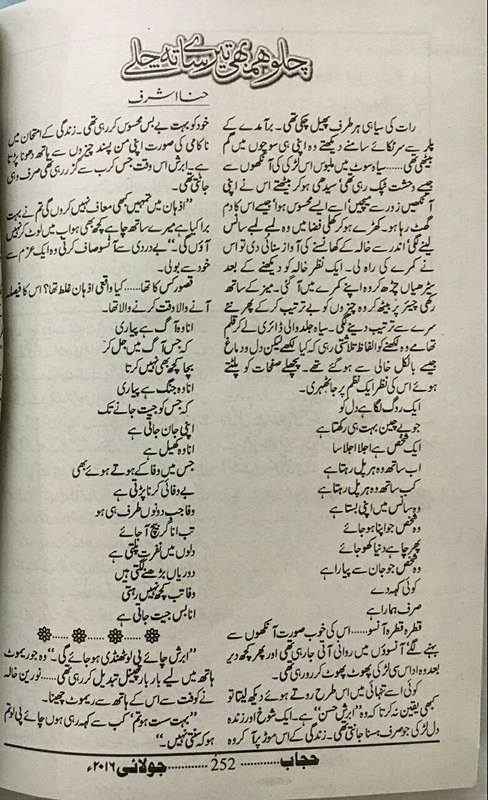 چلو ہم بھی تیرے ساتھ چلے
حنا اشرف
رات کی سیاہی ہر طرف پھیل چکی تھی۔ برآمدے کے
پلر سے سر ٹکائے سامنے دیکھتے وہ اپنی ہی سوچوں میں گم
بیٹھی تھی...... سیاہ سوٹ میں ملبوس اس لڑکی کی آنکھوں سے
جیسے وحشت ٹپک رہی تھی سیدھی ہو کر بیٹھتے اس نے اپنی
آنکھیں زور سے میچیں اسے ایسے محسوس ہوا جیسے اس کا دم
گھٹ رہا ہو۔ کھڑے ہو کر کھلی فضا میں وہ لمبے لمبے سانس
لینے لگی اندر سے خالہ کے کھانسنے کی آواز سنائی دی تو اس
نے کمرے کی راہ لی۔ ایک نظر خالہ کو دیکھنے کے بعد
سیڑھیاں چڑھ کر وہ اپنے کمرے میں آ گئی۔ میز کے ساتھ
رکھی چیئر پر بیٹھ کر وہ چیزوں کو بے ترتیب کر کے پھر نئے
سرے سے ترتیب دینے لگی۔ سیاہ جلد والی ڈائری لے کر قلم
تھامے وہ لکھنے کو الفاظ تلاشتی رہی کہ کیا لکھے لیکن دل و دماغ
جیسے بالکل خالی سے ہو گئے تھے۔ پچھلے صفحات کو پلٹتے
ہوئے اس کی نظر ایک نظم پر جا ٹھہری۔
ایک روگ لگا ہے دل کو
جو بے چین بہت ہی رکھتا ہے
ایک شخص ہے اجلا اجلا سا
اب ساتھ وہ ہر پل رہتا ہے
کب ساتھ وہ ہر پل رہتا ہے
وہ سانس میں اپنی بستا ہے
وہ شخص جو اپنا ہو جائے
پھر چاہے دنیا کھو جائے
وہ شخص جو جان سے پیارا ہے
کوئی کہہ دے
صرف ہمارا ہے
قطرہ قطرہ آنسو...... اس کی خوب صورت آنکھوں سے
بہنے لگے آنسوؤں میں روانی آتی جا رہی تھی اور پھر کچھ دیر
بعد وہ اداس سی لڑکی پھوٹ پھوٹ کر رو رہی تھی۔
کوئی اسے تنہائی میں اس طرح روتے ہوئے دیکھ لیتا تو
کبھی یقین نہ کرتا کہ وہ ”ابرش حسن“ ہے۔ ایک شوخ اور زندہ
دل لڑکی جو صرف ہنسنا جانتی تھی۔ زندگی کے اس موڑ پر آ کر وہ
خود کو بہت بے بس محسوس کر رہی تھی۔ زندگی کے امتحان میں
ناکامی کی صورت اپنی من پسند چیزوں سے ہاتھ دھونا پڑتا
ہے۔ ابرش اس وقت جس کرب سے گزر رہی تھی صرف وہی
جانتی تھی۔
”اذہان میں تمہیں کبھی معاف نہیں کروں گی تم نے بہت
برا کیا ہے میرے ساتھ چاہے کچھ بھی ہو اب میں لوٹ کر نہیں
آؤں گی۔“ بے دردی سے آنسو صاف کرتی وہ ایک عزم سے
خود سے بولی۔
قصور کس کا تھا...... کیا واقعی اذہان غلط تھا؟ اس کا فیصلہ
آنے والا وقت کرنے والا تھا۔
انا وہ آگ ہے پیاری
کہ جس آگ میں جل کر
بچا کچھ بھی نہیں کرتا
انا وہ جنگ ہے پیاری
کہ جس کو جیت جانے تک
اپنی جان جاتی ہے
انا وہ کھیل ہے
جس میں وفا کے ہوتے ہوئے بھی
بے وفائی کرنا پڑتی ہے
وفا جب دونوں طرف ہی ہو
تب انا گر بیچ آ جائے
دلوں میں نفرت پلتی ہے
دوریاں بڑھنے لگتی ہیں
وفا تب کچھ نہیں رہتی
انا بس جیت جاتی ہے
”ابرش چائے پی لو ٹھنڈی ہو جائے گی۔“ وہ جو ریموٹ
ہاتھ میں لیے بار بار چینل تبدیل کر رہی تھی...... نورین خالہ
نے کوفت سے اس کے ہاتھ سے ریموٹ چھینا۔
”بہت ست ہو تم‘ کب سے کہہ رہی ہوں چائے پی لو تم
ہو کہ سنتی نہیں۔“
حجاب ............ 252 ............ جولائی ۲۰۱۶ء